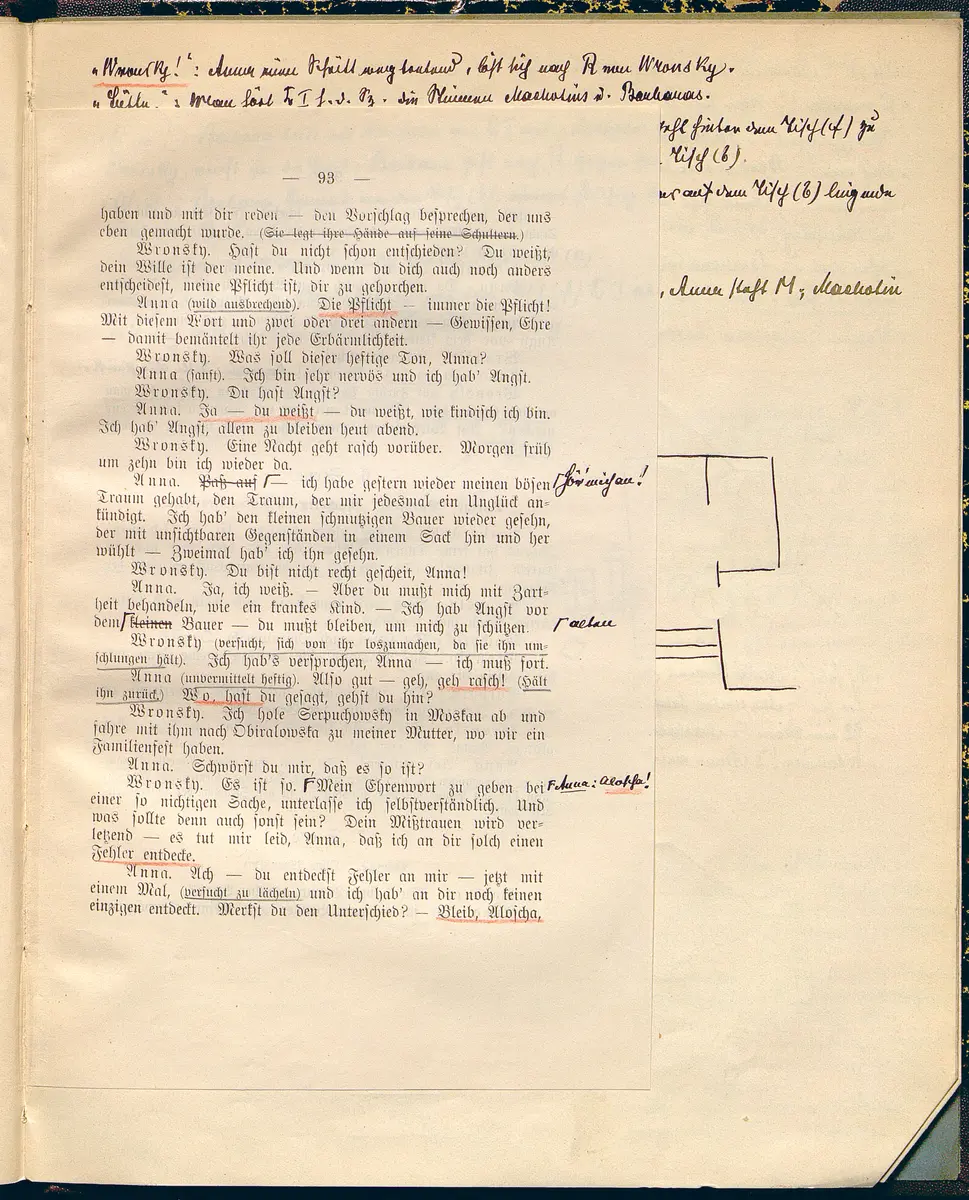 „Wronsky!“: Anna einen Schritt nach R von Wronsky.
Machotins u. Barbaras.
hinter dem Tisch (f) zu
Tisch (b).
auf dem Tisch (b) liegende
, Anna steht M; Machotin
— 93 —
haben und mit dir reden — den Vorschlag besprechen, der uns
eben gemacht wurde. (Sie legt ihre Hände auf seine Schultern.)
Wronsky. Hast du nicht schon entschieden? Du weißt,
dein Wille ist der meine. Und wenn du dich auch noch anders
entscheidest, meine Pflicht ist, dir zu gehorchen.
Anna (wild ausbrechend). Die Pflicht — immer die Pflicht!
Mit diesem Wort und zwei oder drei andern — Gewissen, Ehre
— damit bemäntelt ihr jede Erbärmlichkeit.
Wronsky. Was soll dieser heftige Ton, Anna?
Anna (sanft). Ich bin sehr nervös und ich hab' Angst.
Wronsky. Du hast Angst?
Anna. Ja — du weißt — du weißt, wie kindisch ich bin.
Ich hab' Angst, allein zu bleiben heut abend.
Wronsky. Eine Nacht geht rasch vorüber. Morgen früh
um zehn bin ich wieder da.
Anna. Paß auf — ich habe gestern wieder meinen bösen
Hör' mich an!
Traum gehabt, den Traum, der mir jedesmal ein Unglück an-
kündigt. Ich hab' den kleinen schmutzigen Bauer wieder gesehn,
der mit unsichtbaren Gegenständen in einem Sack hin und her
wühlt — Zweimal hab' ich ihn gesehn.
Wronsky. Du bist nicht recht gescheit, Anna!
Anna. Ja, ich weiß. — Aber du mußt mich mit Zart-
heit behandeln, wie ein krankes Kind. — Ich hab Angst vor
dem kleinen Bauer — du mußt bleiben, um mich zu schützen.
alten
Wronsky (versucht, sich von ihr loszumachen, da sie ihn um-
schlungen hält). Ich hab's versprochen, Anna — ich muß fort.
Anna (unvermittelt heftig). Also gut — geh, geh rasch! (Hält
ihn zurück.) Wo, hast du gesagt, gehst du hin?
Wronsky. Ich hole Serpuchowsky in Moskau ab und
fahre mit ihm nach Obiralowska zu meiner Mutter, wo wir ein
Familienfest haben.
Anna. Schwörst du mir, daß es so ist?
Wronsky. Es ist so. Mein Ehrenwort zu geben bei
Anna: Aloscha!
einer so nichtigen Sache, unterlasse ich selbstverständlich. Und
was sollte denn auch sonst sein? Dein Mißtrauen wird ver-
letzend — es tut mir leid, Anna, daß ich an dir solch einen
Fehler entdecke.
Anna. Ach — du entdeckst Fehler an mir — jetzt mit
einem Mal, (versucht zu lächeln) und ich hab' an dir noch keinen
einzigen entdeckt. Merkst du den Unterschied? — Bleib, Aloscha,